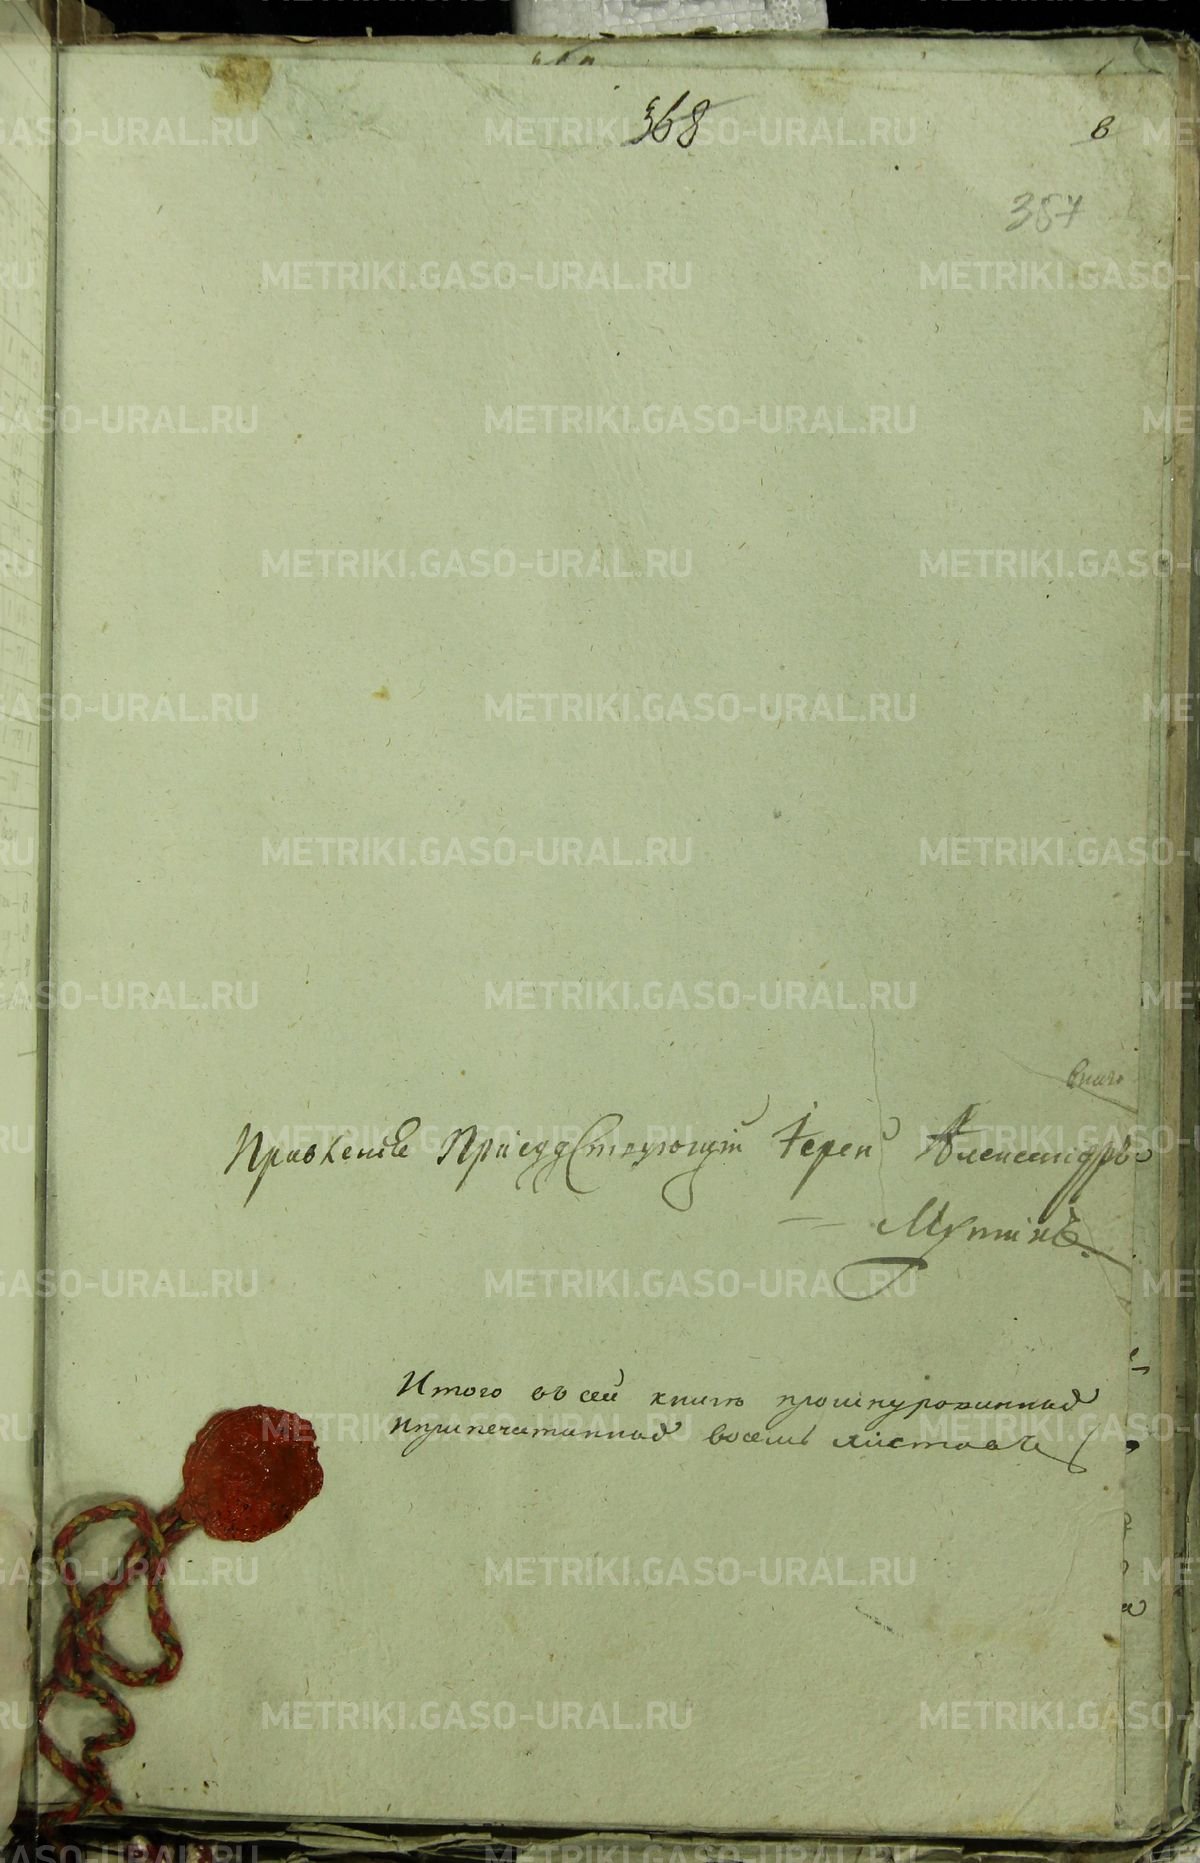 368
8
387
Правленiе Присудствующiй Iерей Александръ
Мутинъ.
Итого въ сей книгѣ прошнурованной
ипрепечатанной восемь листовъ
METRIKI.GASO-URAL.RU